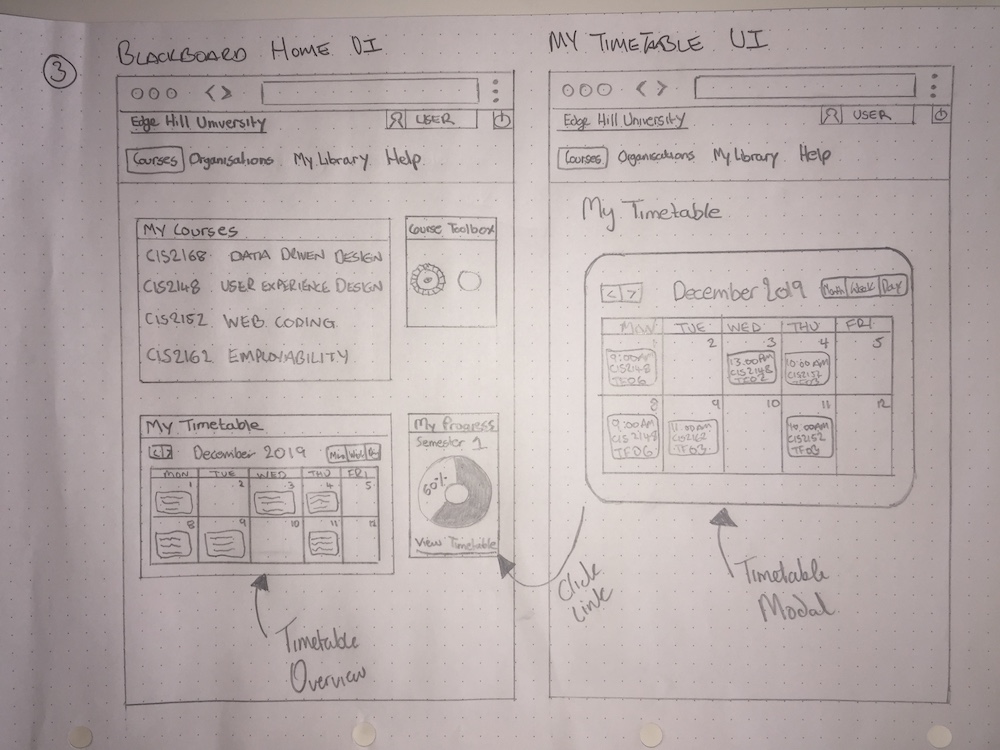 3
BLACKBOARD HOME UI
Edge Hill University
USER
Courses Organisations My Library Help
My Courses
CIS2168 DATA DRIVEN DESIGN
CIS2148 USER EXPERIENCE DESIGN
CIS2152 WEB CODING
CIS2162 EMPLOYABILITY
Course Toolbox
My Timetable
< > December 2019
MON TUE WED THU FRI
1 2 3 4 5
8 9 10 11 12
Timetable
Overview
My Progress
Semester 1
60%
View Timetable
Click
Link
MY TIMETABLE UI
Edge Hill University
USER
Courses Organisations My Library Help
My Timetable
< > December 2019 Month Week Day
MON TUE WED THU FRI
1 2 3 4 5
9:00AM
CIS2148
TF06
13.00AM
CIS2148
TF02
10:00AM
CIS2152
TF03
8 9 10 11 12
9:00AM
CIS2148
TF06
11:00AM
CIS2162
TF03
10.00AM
CIS2152
TF03
Timetable
Modal